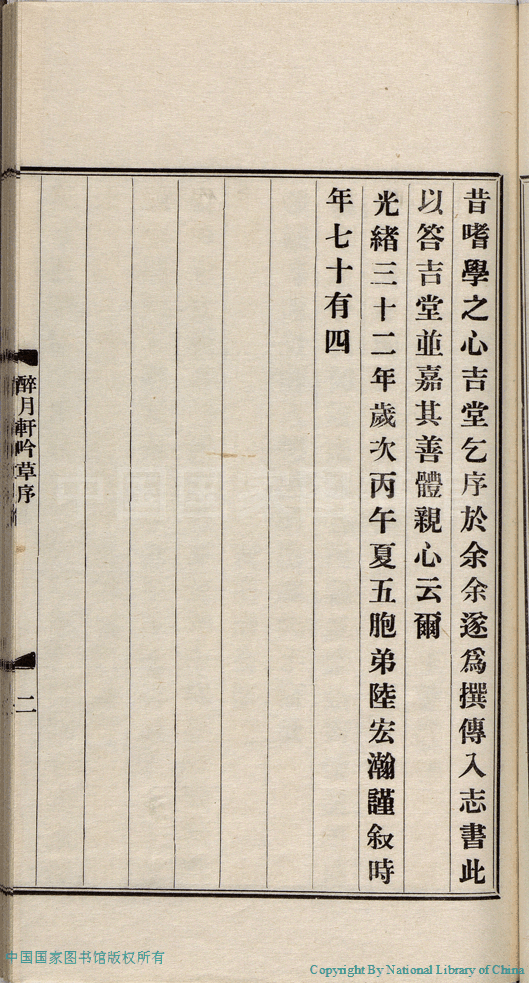 昔嗜學之心吉堂乞序於余余遂爲撰傳入志書此
以答吉堂並嘉其善體親心云爾
光緒三十二年歲次丙午夏五胞弟陸宏瀚謹叙時
年七十有四
醉月軒吟草序
二
中国国家图书馆版权所有
Copyright By National Library of China